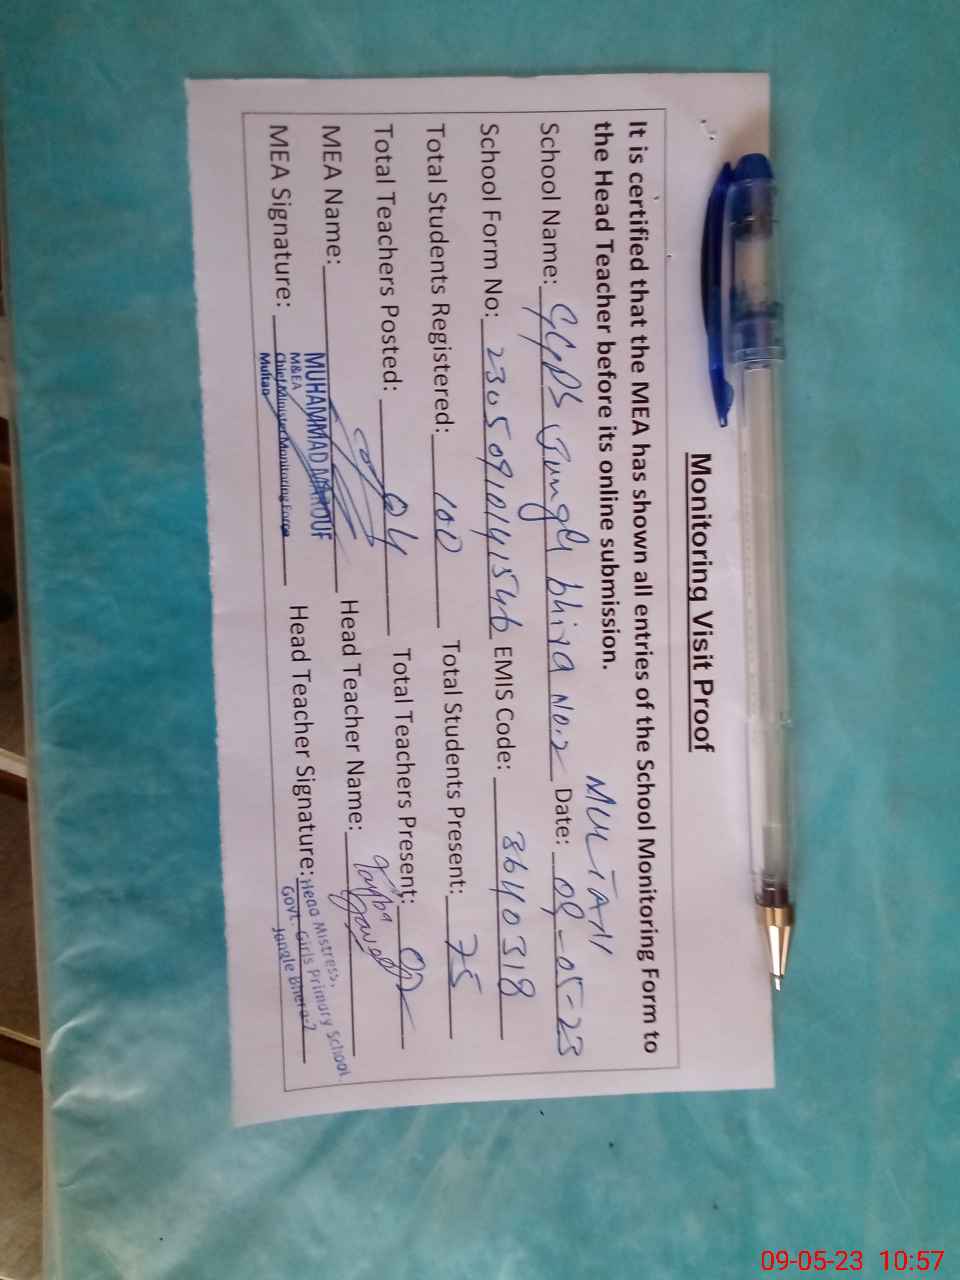 Monitoring Visit Proof
It is certified that the MEA has shown all entries of the School Monitoring Form to
the Head Teacher before its online submission.
MULTAN
School Name: GGPS Jungle bhira No.2 Date: 09-05-23
School Form No: 23050910141546 EMIS Code: 36440318
Total Students Registered: 100 Total Students Present: 75
Total Teachers Posted: 04 Total Teachers Present: 02
MEA Name: Head Teacher Name: Tayyba
MUHAMMAD MAROUF
M&EA
Chief Minister Monitoring Force
Multan
MEA Signature: Head Teacher Signature:
Head Mistress,
Govt. Girls Primary School
Jangle Bhera-2
09-05-23 10:57